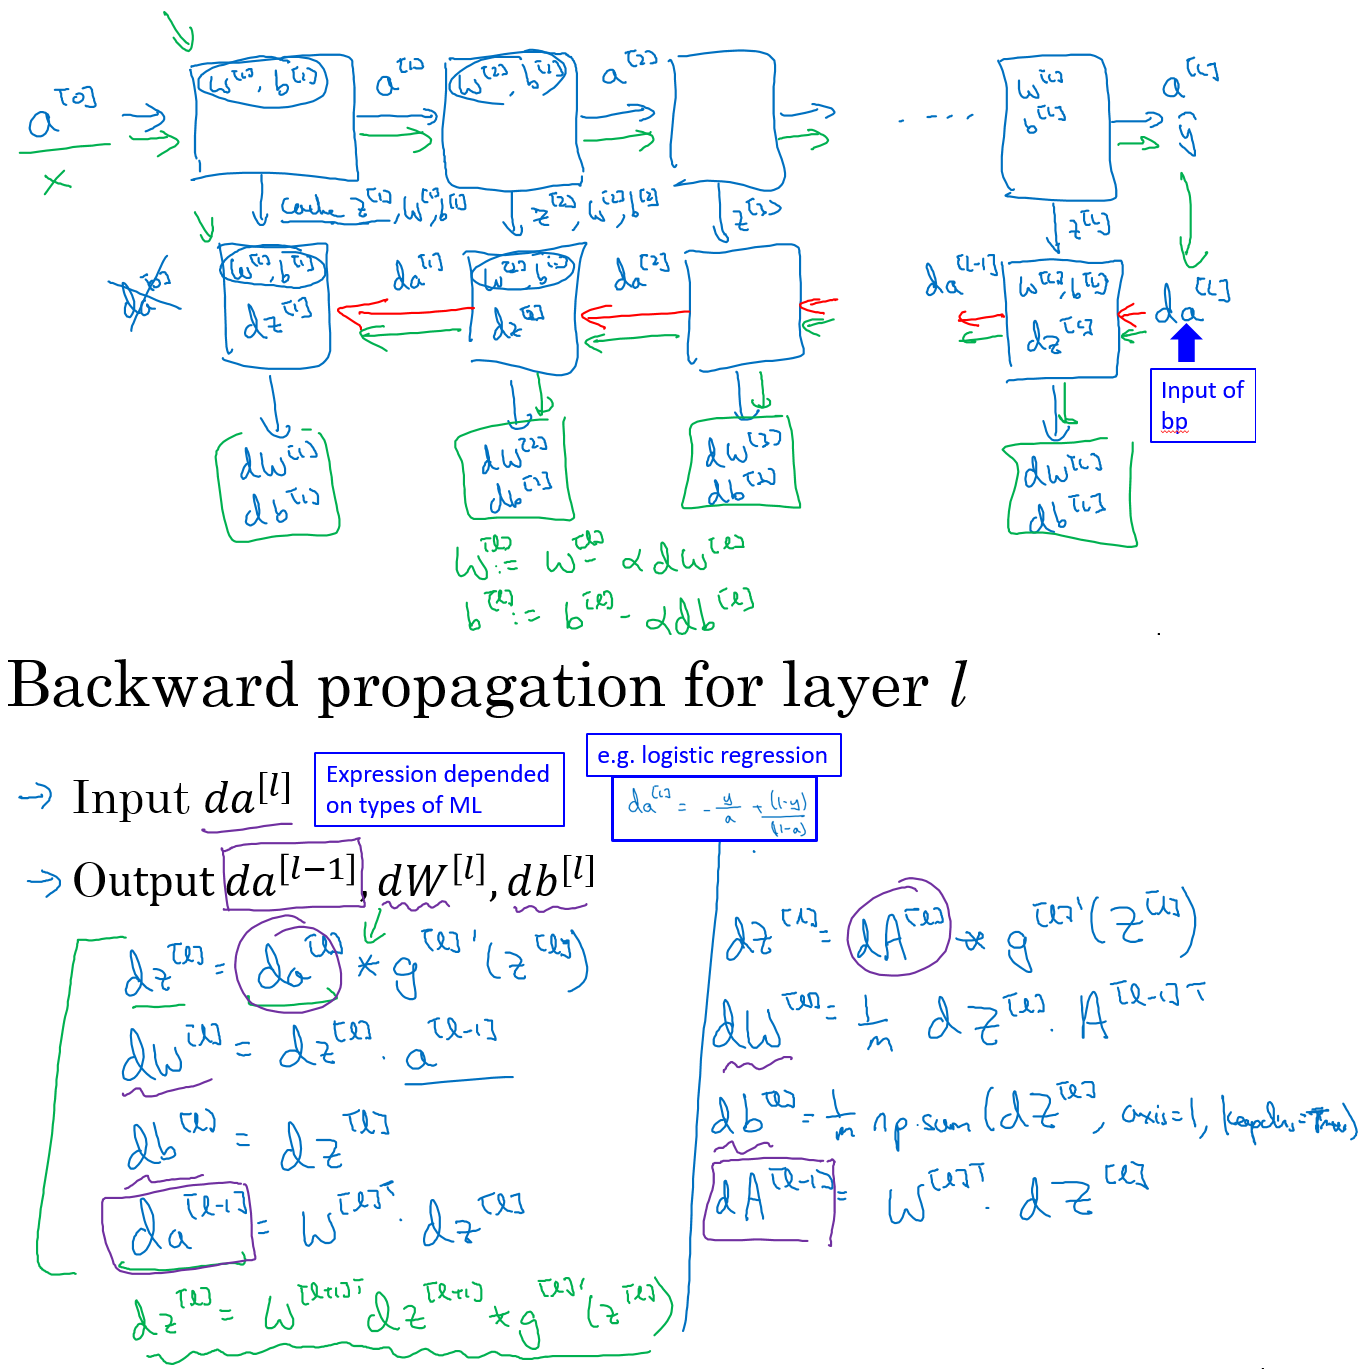 a^[0] → w^[1], b^[1] a^[1] w^[2], b^[2] a^[2] → . . . . w^[L] a^[L]
b^[L] ŷ
x
cache z^[1], w^[1], b^[1] z^[2], w^[2], b^[2] z^[3] z^[L]
da^[0] w^[1], b^[1] da^[1] w^[2], b^[2] da^[2] da^[L-1] w^[L], b^[L] da^[L]
dz^[1] dz^[2] dz^[L]
Input of
bp
dw^[1] dw^[2] dw^[3] dw^[L]
db^[1] db^[2] db^[3] db^[L]
w^[l] := w^[l] - αdw^[l]
b^[l] := b^[l] - αdb^[l]
Backward propagation for layer l
→ Input da^[l]
Expression depended
on types of ML
e.g. logistic regression
da^[L] = - y/a + (1-y)/(1-a)
→ Output da^[l−1], dW^[l], db^[l]
dz^[l] = da^[l] * g^[l]'(z^[l])
dw^[l] = dz^[l] · a^[l-1]
db^[l] = dz^[l]
da^[l-1] = w^[l]T · dz^[l]
dz^[l] = w^[l+1]T dz^[l+1] * g^[l]'(z^[l])
dZ^[l] = dA^[l] * g^[l]'(Z^[l])
dW^[l] = 1/m dZ^[l] · A^[l-1]T
db^[l] = 1/m np.sum(dZ^[l], axis=1, keepdims=True)
dA^[l-1] = W^[l]T · dZ^[l]